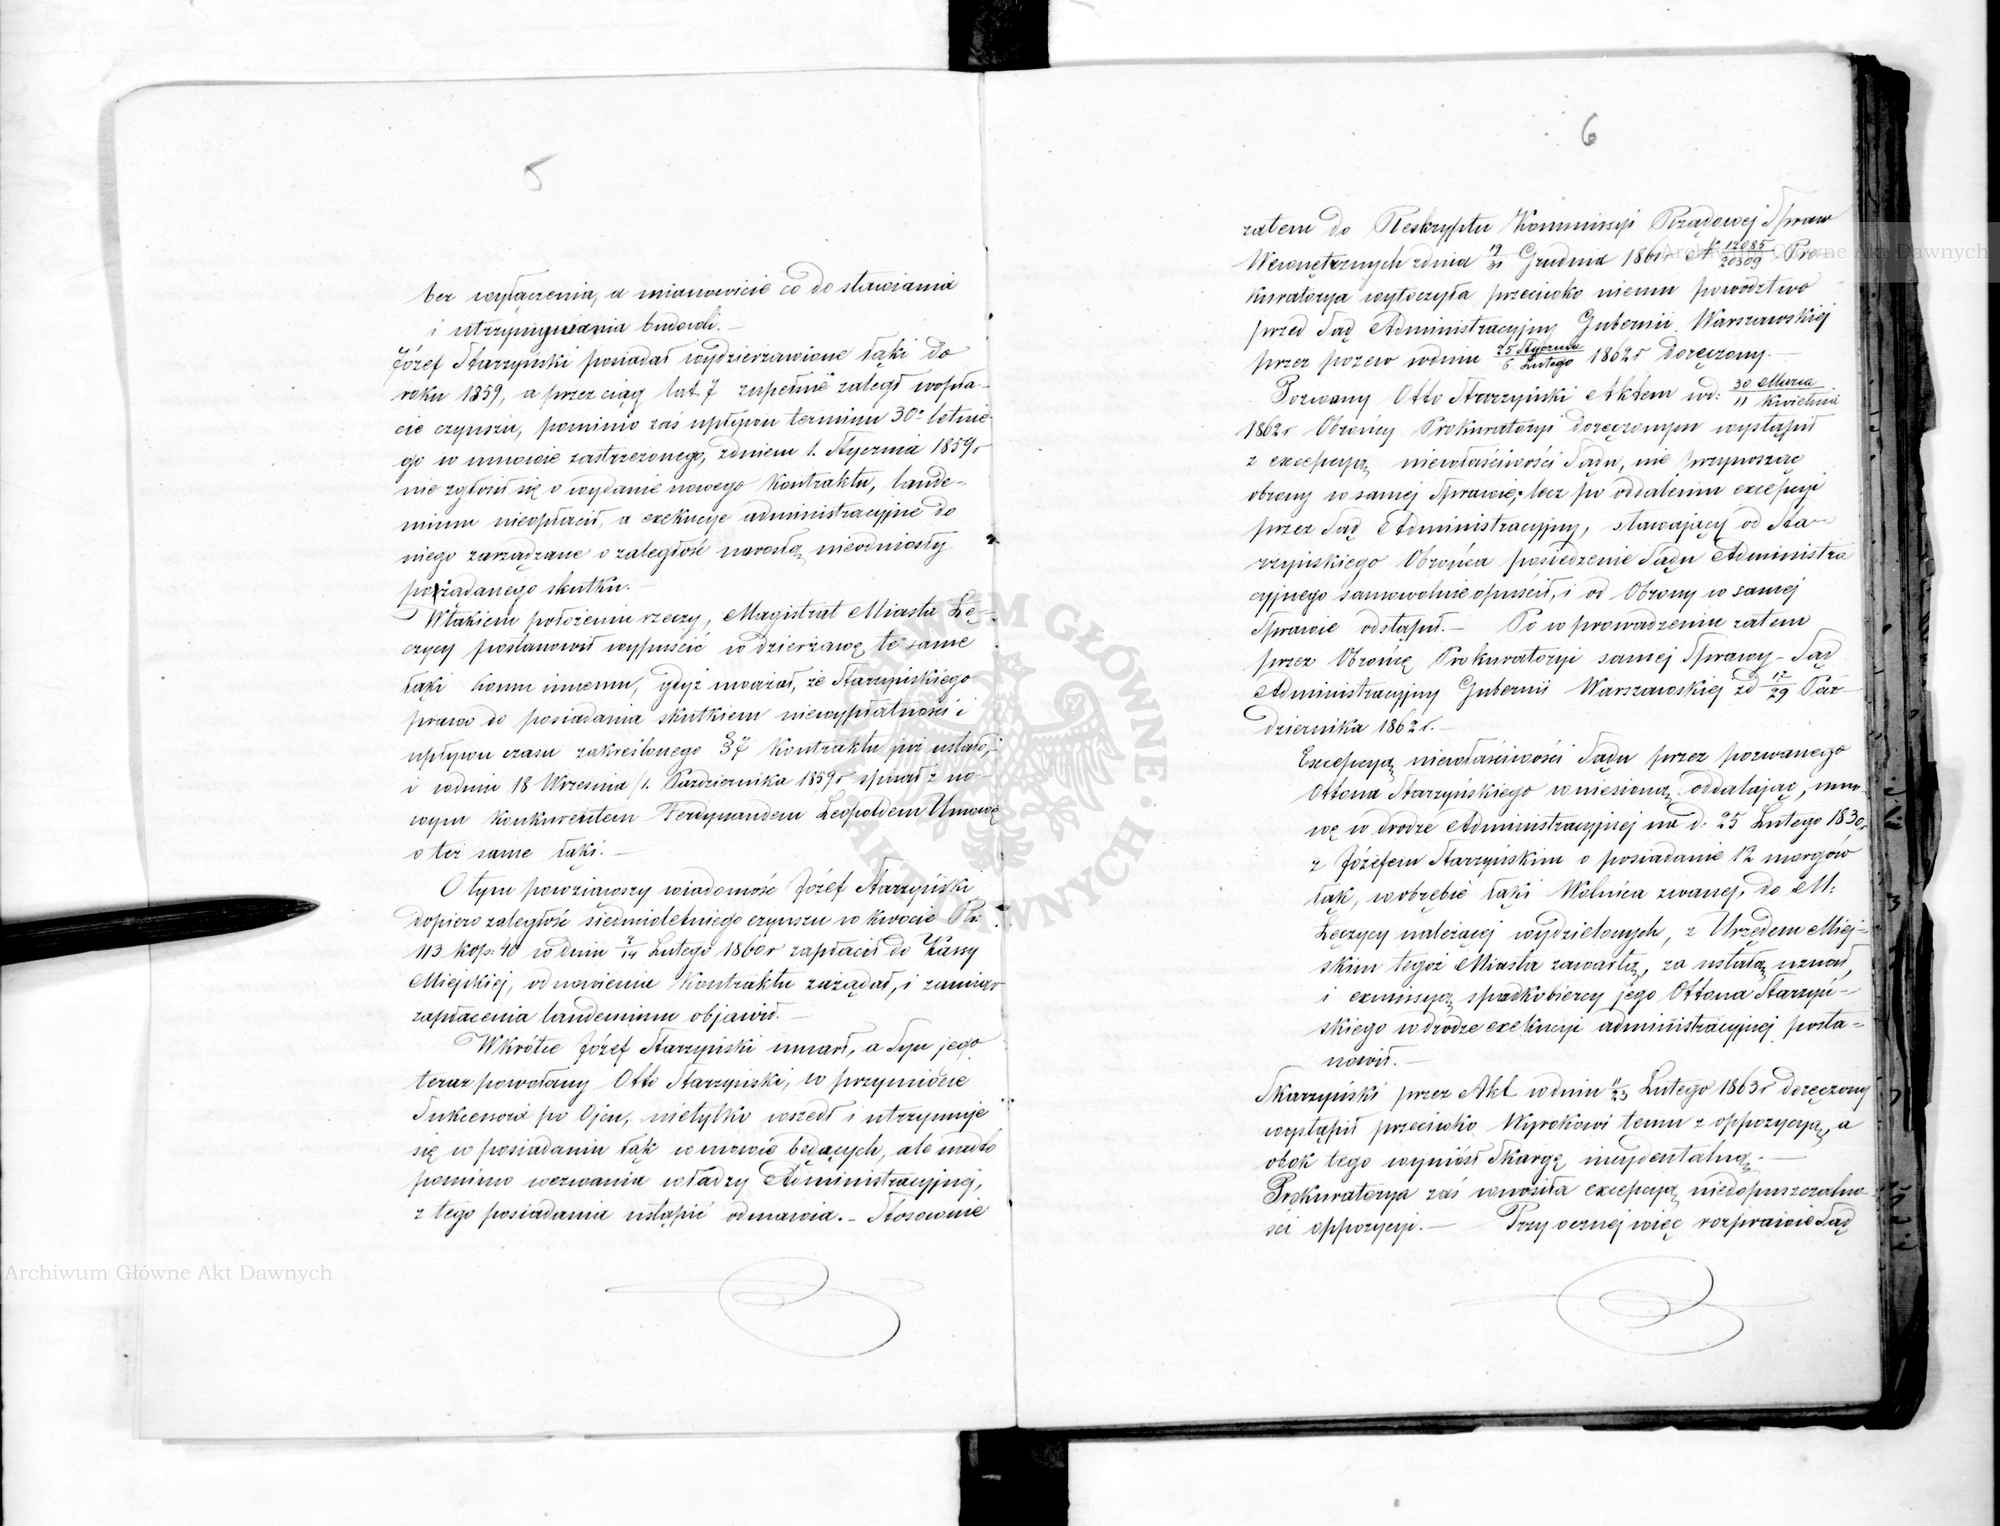 5
bez wyłączenia, a mianowicie co do stawiania
i utrzymywania budowli. —
Józef Starzyński posiadał wydzierżawione łąki do
roku 1859, a przez ciąg lat 7 zupełnie zaległ w opła-
cie czynszu, pomimo zaś upływu terminu 30o letnie-
go w umowie zastrzeżonego, z dniem 1. Stycznia 1859 r
nie zgłosił się o wydanie nowego Kontraktu, laude-
mium nieopłacił, a exekucye administracyjne do
niego zarządzane o zaległość narosłą nieodniosły
pożądanego skutku. —
W takiem położeniu rzeczy, Magistrat Miasta Łę-
czycy postanowił wypuścić w dzierżawę te same
łąki komu innemu, gdyż uważał, że Starzyńskiego
prawo do posiadania skutkiem niewypłatności i
upływu czasu zakreślonego § 7 Kontraktu już ustało,
i w dniu 18 Września / 1. Października 1859 r spisał z no-
wym konkurentem Ferdynandem Leopoldem Umowę
o też same łąki. —
O tym powziąwszy wiadomość Józef Starzyński
dopiero zaległość siedmioletniego czynszu w kwocie Rs:
113 kop: 40 w dniu 2/14 Lutego 1860 r zapłacił do Kassy
Miejskiej, odnowienia Kontraktu zażądał, i zamiar
zapłacenia laudemium objawił. —
Wkrótce Józef Starzyński umarł, a Syn jego
teraz powołany Otto Starzyński, w przymiocie
Sukcessora po Ojcu, nietylko wszedł i utrzymuje
się w posiadaniu łąk w mowie będących, ale nadto
pomimo wezwania władzy Administracyjnej,
z tego posiadania ustąpić odmawia. — Stosownie
6
zatem do Reskryptu Kommissyi Rządowej Spraw
Wewnętrznych z dnia 19/31 Grudnia 1861 r N 12085/20309 Pro
kuratorya wytoczyła przeciwko niemu powództwo
przed Sąd Administracyjny Gubernii Warszawskiej
przez pozew w dniu 25 Stycznia/6 Lutego 1862 r doręczony. —
Pozwany Otto Starzyński Aktem w d: 30 Marca/11 Kwietnia
1862 r Obrońcy Prokuratoryi doręczonym wystąpił
z excepcyą niewłaściwości Sądu, nie przynosząc
obrony w samej Sprawie; lecz po oddaleniu excepcyi
przez Sąd Administracyjny, stawający od Sta-
rzyńskiego Obrońca posiedzenie Sądu Administra
cyjnego samowolnie opuścił, i od Obrony w samej
Sprawie odstąpił. — Po wprowadzeniu zatem
przez Obrońcę Prokuratoryi samej Sprawy — Sąd
Administracyjny Gubernii Warszawskiej z d 17/29 Paź-
dziernika 1862 r. —
Excepcyą niewłaściwości Sądu przez pozwanego
Ottona Starzyńskiego wniesioną oddalając, umo-
wę w drodze Administracyjnej na d. 25 Lutego 1830 r
z Józefem Starzyńskim o posiadanie 12 morgów
łąk, w obrębie łąki Wolnica zwanej, do M:
Łęczycy należącej wydzielonych, z Urzędem Miej-
skim tegoż Miasta zawartą, za ustałą uznał,
i exmissyą spadkobiercy jego Ottona Starzyń-
skiego w drodze exekucyi administracyjnej posta-
nowił. —
Skarzyński przez Akt w dniu 11/23 Lutego 1863 r doręczony
wystąpił przeciwko Wyrokowi temu z oppozycyą, a
obok tego wyniósł Skargę incydentalną. —
Prokuratorya zaś wnosiła excepcyą niedopuszczalno-
ści oppozycyi. — Przy ocznej więc rozprawie Sąd
Archiwum Główne Akt Dawnych
Archiwum Główne Akt Dawnych
ARCHIWUM GŁÓWNE AKT DAWNYCH